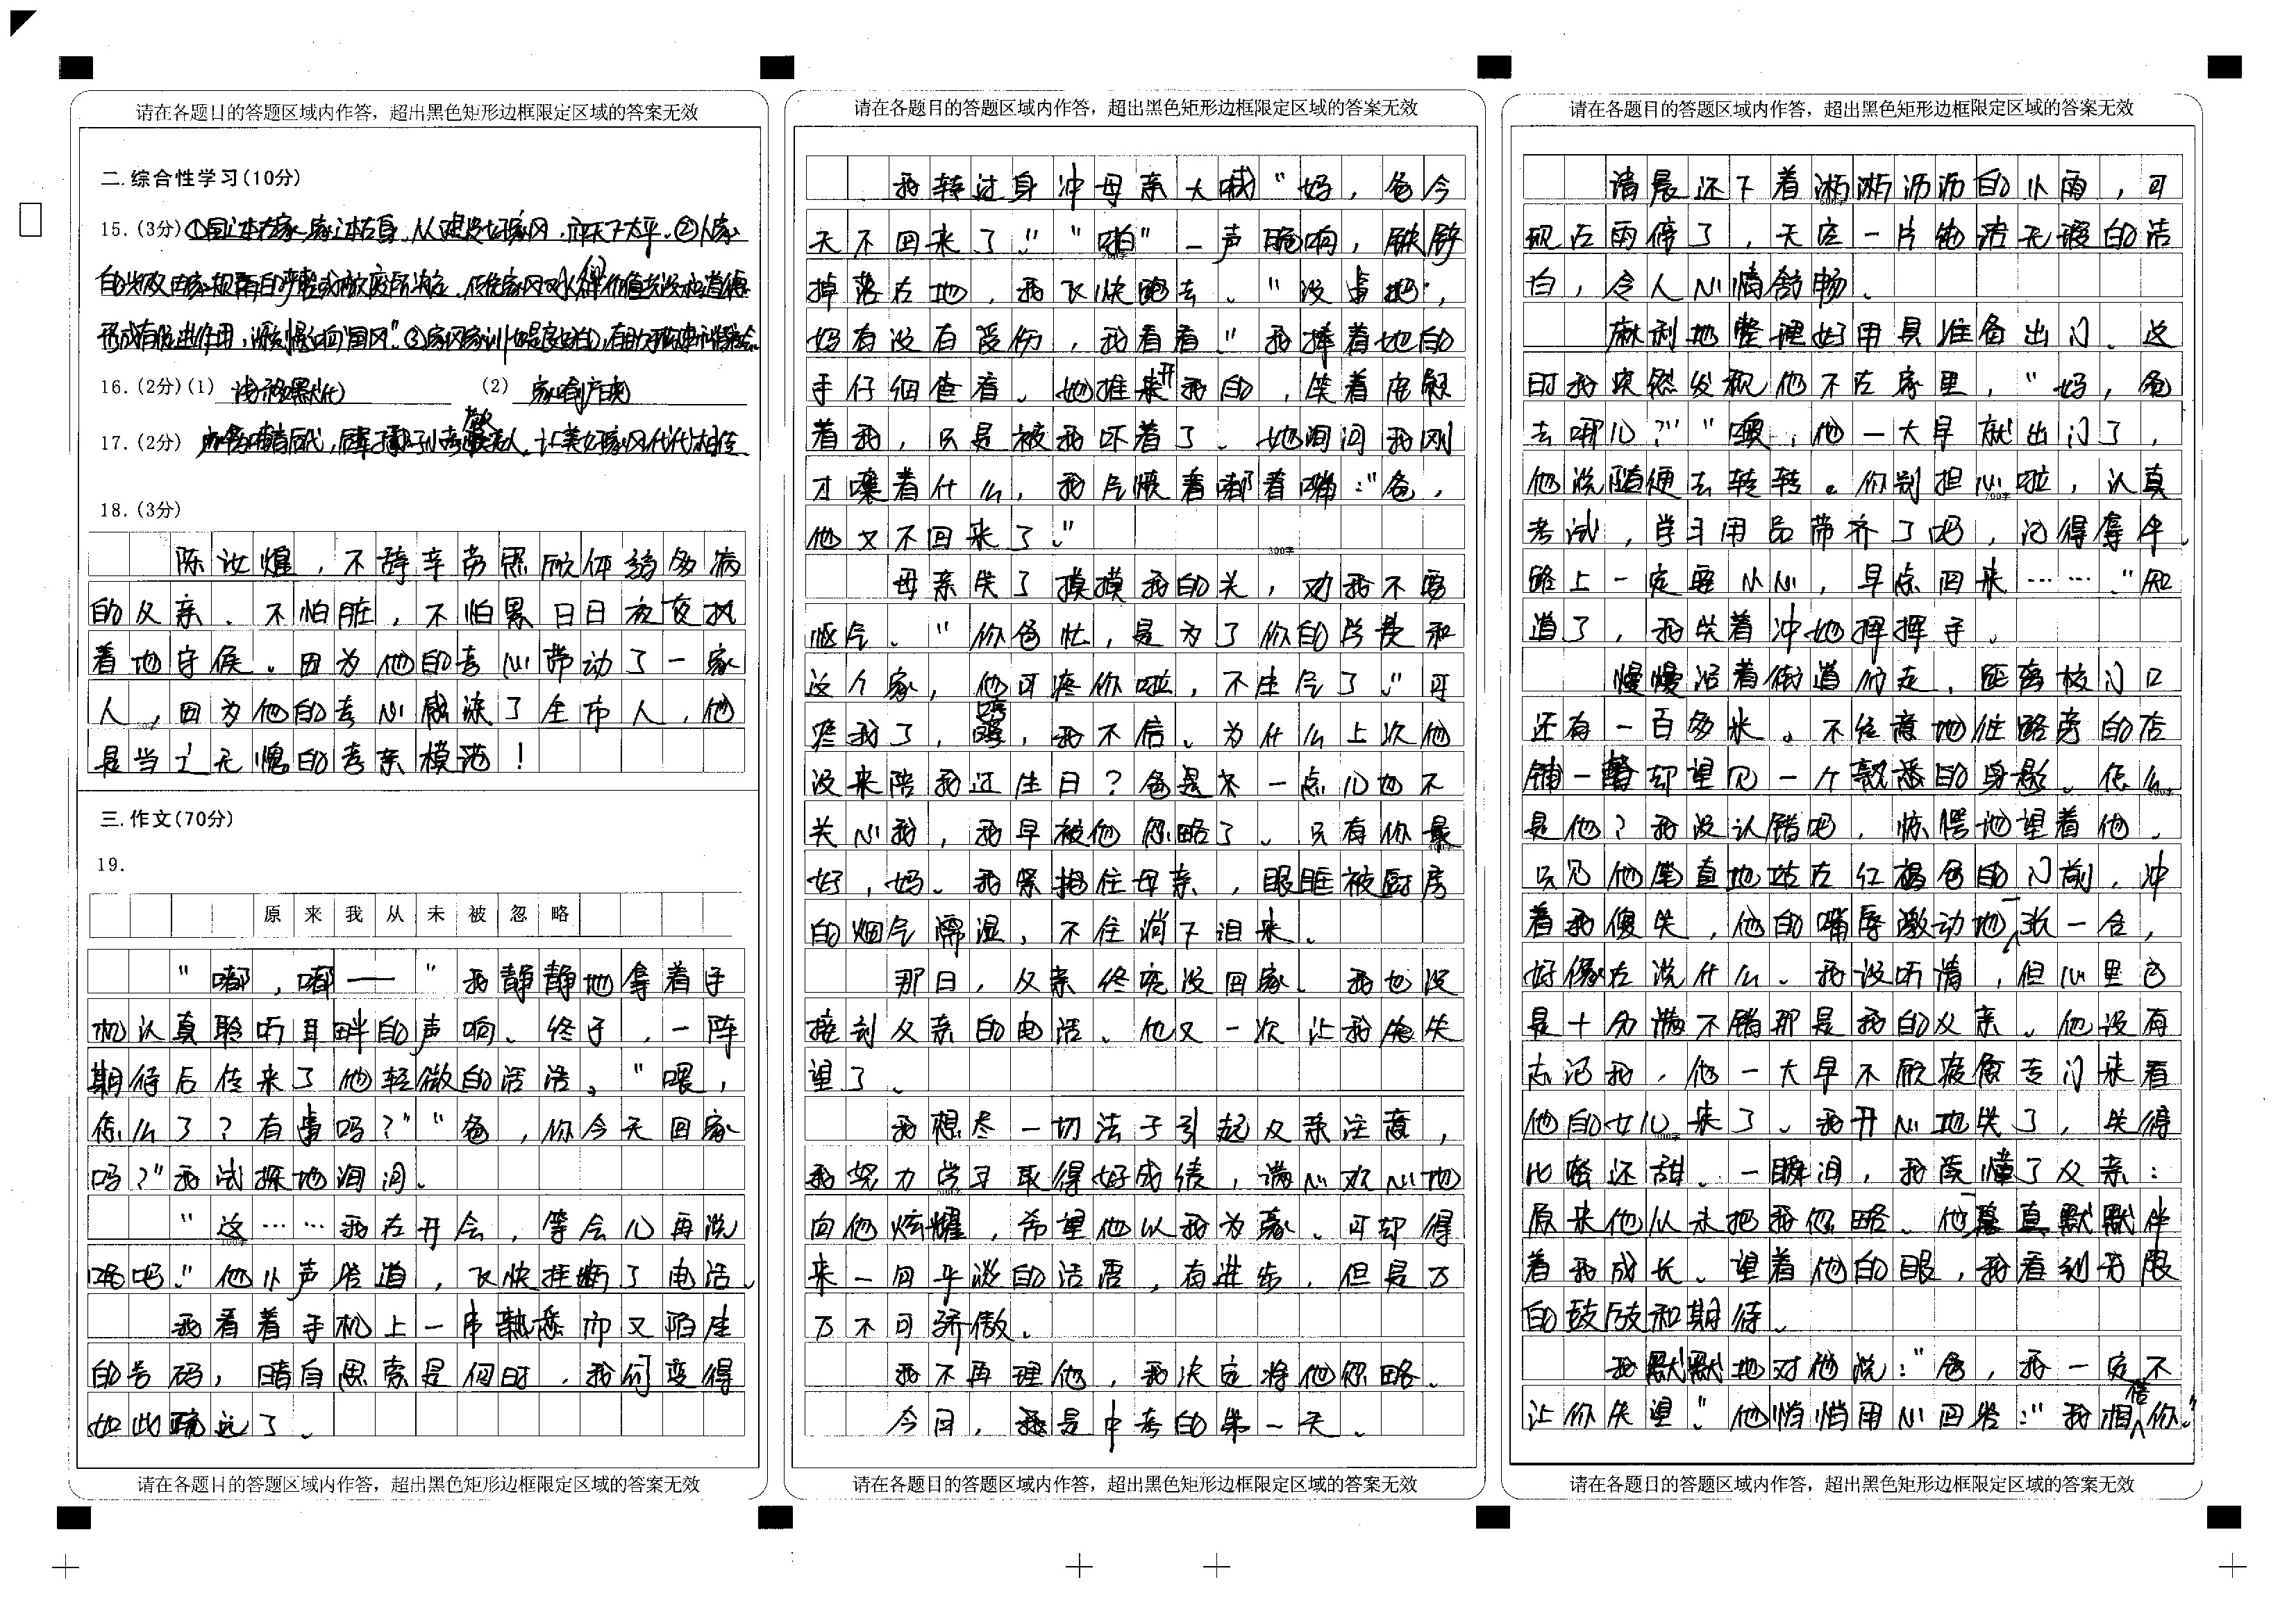 请在各题目的答题区域内作答，超出黑色矩形边框限定区域的答案无效
二.综合性学习(10分)
15.(3分)①国之本在家，家之本在身，人人建设好家风，而天下太平。②
16.(2分)(1)潜移默化 (2)家喻户晓
17.(2分) 让美好家风代代相传
18.(3分)
陈汝煌，不辞辛劳照顾体弱多病
的父亲、不怕脏，不怕累日日夜夜执
着地守候。因为他的孝心带动了一家
人，因为他的孝心感染了全市人，他
是当之无愧的孝亲模范！
三.作文(70分)
19.
原来我从未被忽略
“嘟，嘟——”我静静地拿着手
机认真聆听耳畔的声响、终于，一阵
期待后传来了他轻微的话语。“喂，
怎么了？有事吗？”“爸，你今天回家
吗？”我试探地询问.
“这……我在开会，等会儿再说
吧。”他小声答道，飞快挂断了电话.
100字
我看着手机上一串熟悉而又陌生
的号码，暗自思索是何时，我们变得
如此疏远了.
请在各题目的答题区域内作答，超出黑色矩形边框限定区域的答案无效
请在各题目的答题区域内作答，超出黑色矩形边框限定区域的答案无效
我转过身冲母亲大喊“妈，爸今
天不回来了。”“啪”一声脆响，
掉落在地，我飞快跑去.“没事吧，
妈有没有受伤，我看看。”我捧着她的
手仔细查看.她推开我的，笑着安慰
着我，只是被我吓着了.她询问我刚
才嚷着什么，我气愤着嘟着嘴：“爸，
他又不回来了。”
300字
母亲笑了摸摸我的头，劝我不要
怄气.“你爸忙，是为了你的学费和
这个家，他可疼你啦，不生气了。”可
疼我了，哼，我不信.为什么上次他
没来陪我过生日？爸是不一点儿也不
关心我，我早被他忽略了.只有你最
好，妈.我紧抱住母亲，眼眶被厨房
的烟气濡湿，不住淌下泪来.
那日，父亲终究没回家.我也没
接到父亲的电话.他又一次让我失
望了.
我想尽一切法子引起父亲注意，
我努力学习取得好成绩，满心欢心地
500字
向他炫耀，希望他以我为豪.可却得
来一句平淡的话语，有进步，但是万
万不可骄傲.
我不再理他，我决定将他忽略.
今日，我是中考的第一天.
请在各题目的答题区域内作答，超出黑色矩形边框限定区域的答案无效
请在各题目的答题区域内作答，超出黑色矩形边框限定区域的答案无效
清晨还下着淅淅沥沥的小雨，可
600字
现在雨停了，天空一片纯洁无瑕的洁
白，令人心情舒畅.
麻利地整理好用具准备出门.这
时我突然发现他不在家里，“妈，爸
去哪儿？”“噢，他一大早就出门了，
他说随便去转转。你别担心啦，认真
700字
考试，学习用品带齐了吗，记得拿伞.
路上一定要小心，早点回来……”知
道了，我笑着冲她挥挥手.
慢慢沿着街道行走，距离校门口
还有一百多米.不经意地往路旁的店
铺一瞥却望见一个熟悉的身影.怎么
800字
是他？我没认错吧，惊愕地望着他，
只见他笔直地站在红褐色的门前，冲
着我傻笑，他的嘴唇激动地一张一合，
好像在说什么.我没听清，但心里已
是十分满不错那是我的父亲.他没有
忘记我，他一大早不顾疲惫专门来看
他的女儿来了.我开心地笑了，笑得
900字
比蜜还甜.一瞬间，我读懂了父亲：
原来他从未把我忽略.他一直默默伴
着我成长.望着他的眼，我看到无限
的鼓励和期待.
我默默地对他说：“爸，我一定不
让你失望。”他悄悄用心回答：“我相信你。”
请在各题目的答题区域内作答，超出黑色矩形边框限定区域的答案无效